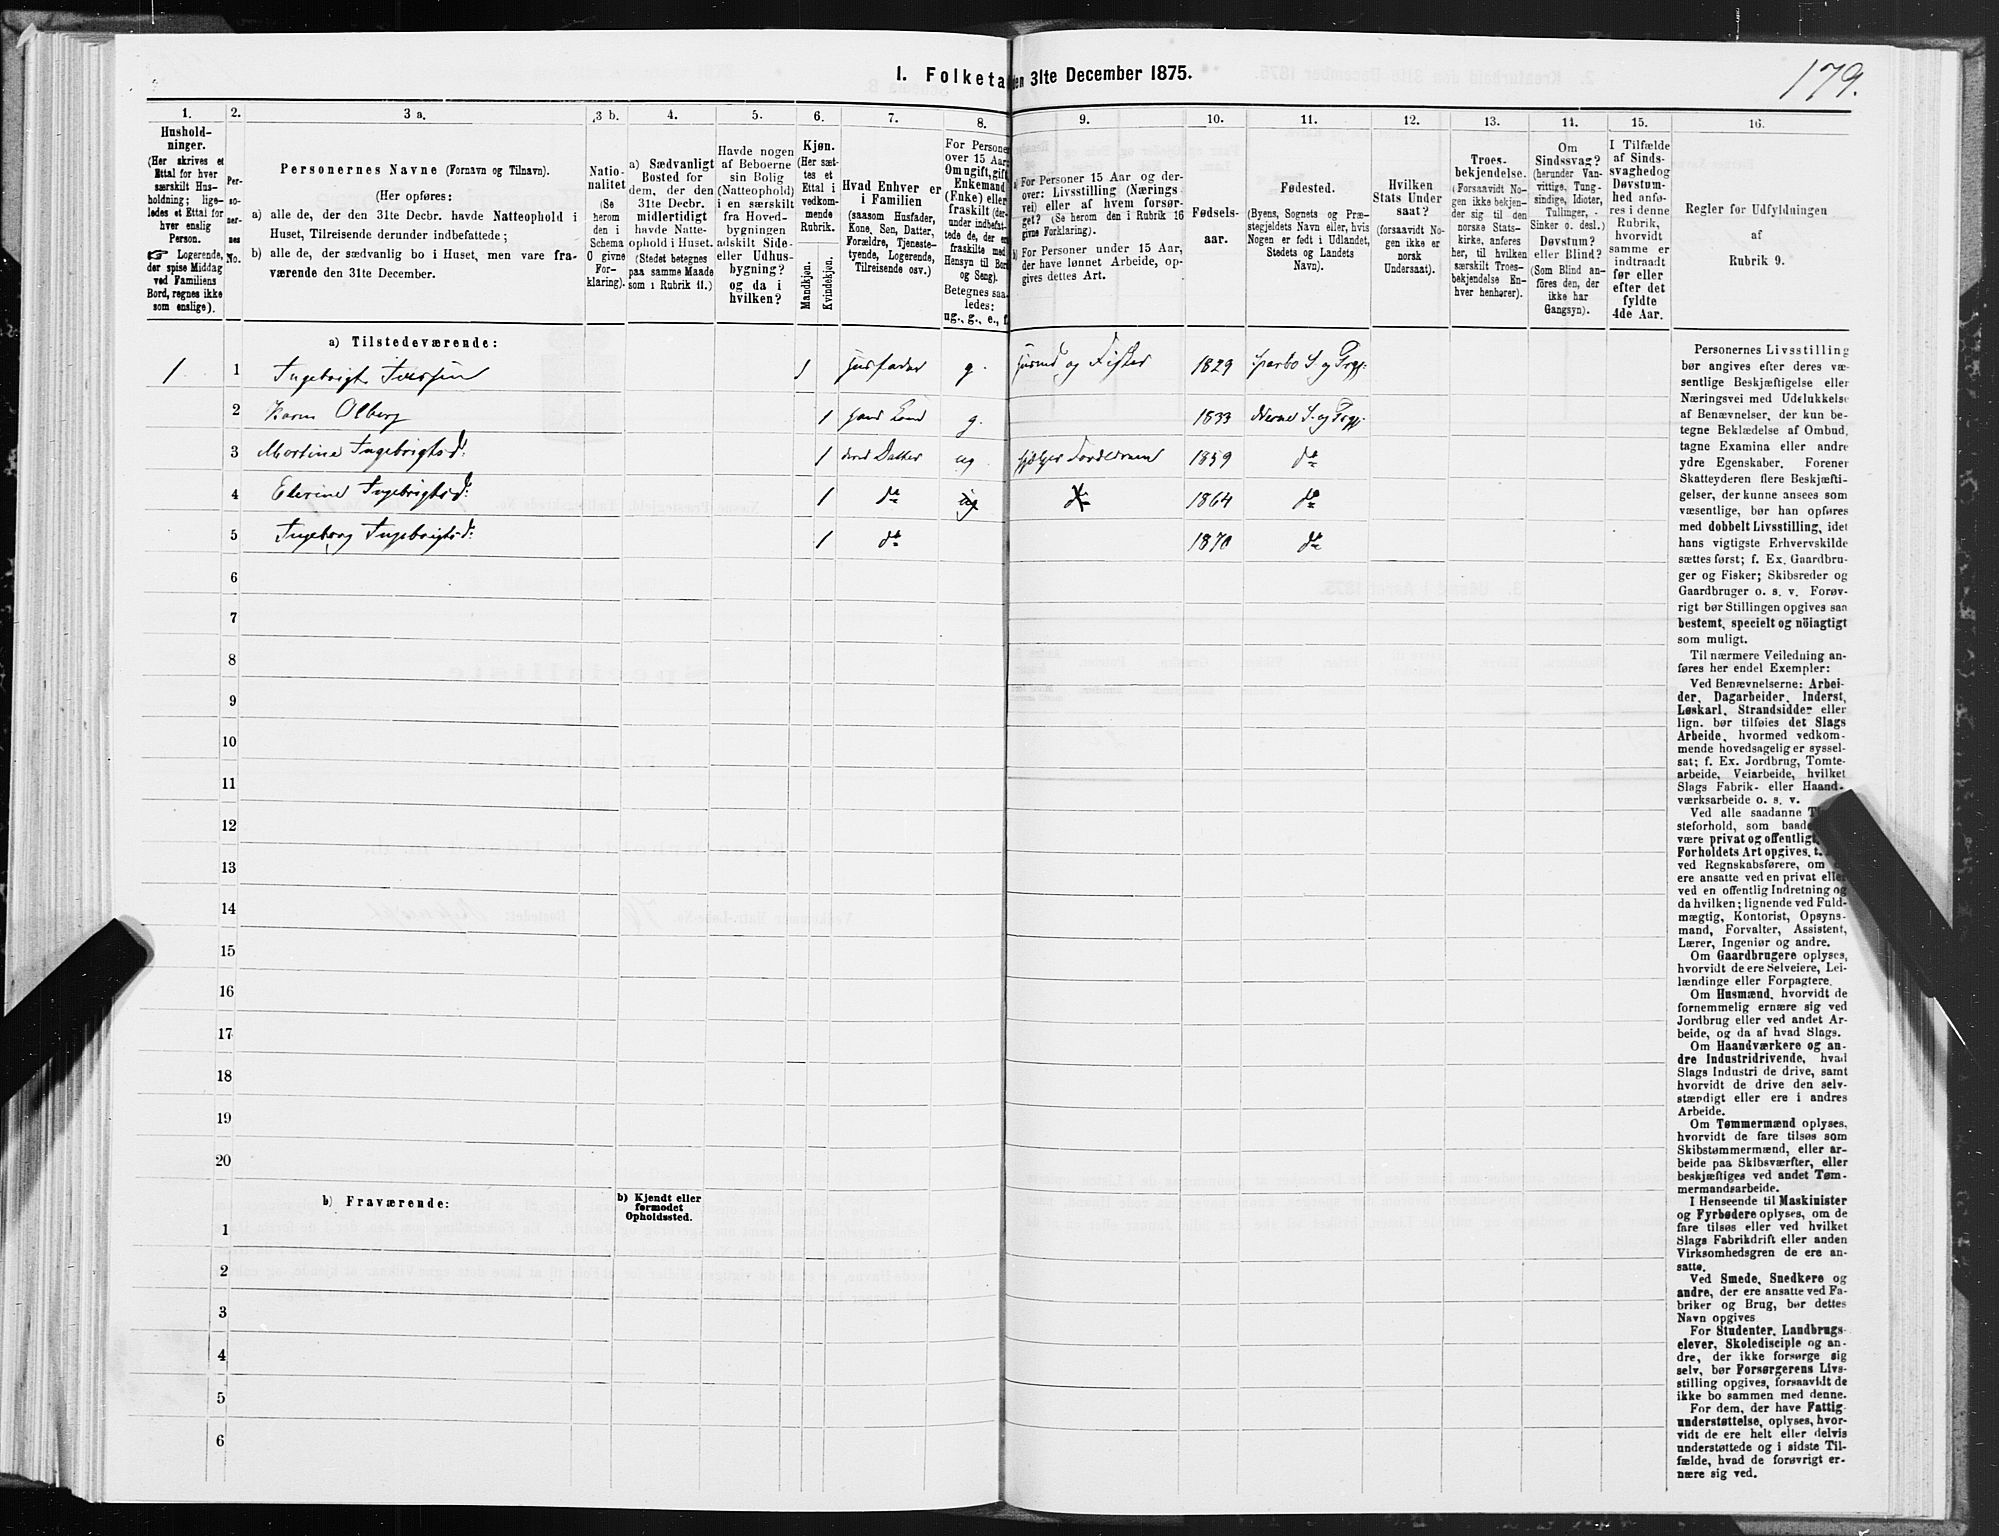 I. Folketæ den 31te December 1875.
179.
1.
Hushold-
ninger.
(Her skrives et
Ettal for hver
særskilt Hus-
holdning; lige-
ledes et Ettal for
hver enslig
Person.
☞ Logerende,
der spise Middag
ved Familiens
Bord, regnes ikke
som enslige).
2.
Per-
so-
ner-
nes
No.
3 a.
Personernes Navne (Fornavn og Tilnavn).
(Her opføres:
a) alle de, der den 31te Decbr. havde Natteophold i
Huset, Tilreisende derunder indbefattede;
b) alle de, der sædvanlig bo i Huset, men vare fra-
værende den 31te December.
3 b.
Natio-
nalitet
(Se
herom
den i
Schema
O givne
For-
klaring).
4.
a) Sædvanligt
Bosted for
dem, der den
31te Decbr.
midlertidigt
havde Natte-
ophold i Huset.
(Stedet betegnes
paa samme Maade
som i Rubrik 11.)
5.
Havde nogen
af Beboerne
sin Bolig
(Natteophold)
i en særskilt
fra Hoved-
bygningen
adskilt Side-
eller Udhus-
bygning?
og da i
hvilken?
6.
Kjøn.
(Her sæt-
tes et
Ettal i
vedkom-
mende
Rubrik.
Mandkjøn.
Kvindekjøn.
7.
Hvad Enhver er
i Familien
(saasom Husfader,
Kone, Søn, Datter,
Forældre, Tjeneste-
tyende, Logerende,
Tilreisende osv.)
8.
For Personer
over 15 Aar:
Om ugift, gift,
Enkemand
(Enke) eller
fraskilt (der-
under indbefat-
tede de, der er
fraskilte med
Hensyn til Bord
og Seng).
Betegnes saa-
ledes:
ug., g., e., f.
9.
a) For Personer 15 Aar og der-
over: Livsstilling (Nærings
vei) eller af hvem forsør-
get? (Se herom den i Rubrik 16
givne Forklaring).
b) For Personer under 15 Aar,
der have lønnet Arbeide, op-
gives dettes Art.
10.
Fødsels-
aar.
11.
Fødested.
(Byens, Sognets og Præ-
stegjeldets Navn eller, hvis
Nogen er født i Udlandet,
Stedets og Landets
Navn).
12.
Hvilken
Stats Under
saat?
(forsaavidt No-
gen ikke er
norsk
Undersaat).
13.
Troes-
bekjendelse.
(Forsaavidt No-
gen ikke bekjen-
der sig til den
norske Stats-
kirke, anføres
her, til hvilken
særskilt Troes-
bekjendelse En-
hver henhører).
14.
Om
Sindssvag?
(herunder Van-
vittige, Tung-
sindige, Idioter,
Tullinger,
Sinker o. desl.)
Døvstum?
eller Blind?
(Som Blind an-
føres den, der
ikke har
Gangsyn).
15.
I Tilfælde
af Sinds-
svaghed og
Døvstum-
hed anfø-
res i denne
Rubrik,
hvorvidt
samme er
indtraadt
før eller
efter det
fyldte
4de Aar.
16.
Regler for Udfyldningen
af
Rubrik 9.
a) Tilstedeværende:
1 1 Ingebrigt Iversen 1 Husfader g. Husmd og Fisker 1829 Sparbo S og Prgj:
2 Karen Olberg 1 hans Kone g. 1833 S. og Prgj.
3 Martine Ingebrigtsd: 1 deres Datter ug hjelper Forældrene 1859 do
4 Elerine Ingebrigtsd: 1 do ug do 1864 do
5 Ingeborg Ingebrigtsd: 1 do 1870 do
6
7
8
9
10
11
12
13
14
15
16
17
18
19
20
b) Fraværende:
b) Kjendt eller
formodet
Opholdssted.
1
2
3
4
5
6
Personernes Livsstilling
bør angives efter deres væ-
sentlige Beskjæftigelse eller
Næringsvei med Udelukkelse
af Benævnelser, der kun be-
tegne Beklædelse af Ombud,
tagne Examina eller andre
ydre Egenskaber. Forener
Skatteyderen flere Beskjæfti-
gelser, der kunne ansees som
væsentlige, bør han opføres
med dobbelt Livsstilling, idet
hans vigtigste Erhvervskilde
sættes først; f. Ex. Gaardbru-
ger og Fisker; Skibsreder og
Gaardbruger o. s. v. Forøv-
rigt bør Stillingen opgives saa
bestemt, specielt og nöiagtigt
som muligt.
Til nærmere Veiledning an-
føres her endel Exempler:
Ved Benævnelserne: Arbei-
der, Dagarbeider, Inderst,
Løskarl, Strandsidder eller
lign. bør tilføies det Slags
Arbeide, hvormed vedkom-
mende hovedsagelig er syssel-
sat; f. Ex. Jordbrug, Tomte-
arbeide, Veiarbeide, hvilket
Slags Fabrik- eller Haand-
værksarbeide o. s. v.
Ved alle saadanne
steforhold, som baade
være privat og offentligt,
Forholdets Art opgives, t.
ved Regnskabsførere, om
ere ansatte ved en privat eller
ved en offentlig Indretning og
da hvilken; lignende ved Fuld-
mægtig, Kontorist, Opsyns-
mand, Forvalter, Assistent,
Lærer, Ingeniør og andre.
Om Gaardbrugere oplyses,
hvorvidt de ere Selveiere, Lei-
lændinge eller Forpagtere.
Om Husmænd, hvorvidt de
fornemmelig ernære sig ved
Jordbrug eller ved andet Ar-
beide, og da af hvad Slags.
Om Haandværkere og an-
dre Industridrivende, hvad
Slags Industri de drive, samt
hvorvidt de drive den selv-
stændigt eller ere i andres
Arbeide.
Om Tømmermænd oplyses,
hvorvidt de fare tilsøs som
Skibstømmermænd, eller ar-
beide paa Skibsværfter, eller
beskjæftiges ved andet Tøm-
mermandsarbeide.
I Henseende til Maskinister
og Fyrbødere oplyses, om de
fare tilsøs eller ved hvilket
Slags Fabrikdrift eller anden
Virksomhedsgren de ere an-
satte.
Ved Smede, Snedkere og
andre, der ere ansatte ved Fa-
briker og Brug, bør dettes
Navn opgives
For Studenter, Landbrugs-
elever, Skoledisciple og an-
dre, der ikke forsørge sig
selv, bør Forsørgerens Livs-
stilling opgives, forsaavidt de
ikke bo sammen med denne.
For dem, der have Fattig-
understøttelse, oplyses, hvor-
vidt de ere helt eller delvis
understøttede og i sidste Til-
fælde, hvad de forøvrigt er-
nære sig ved.